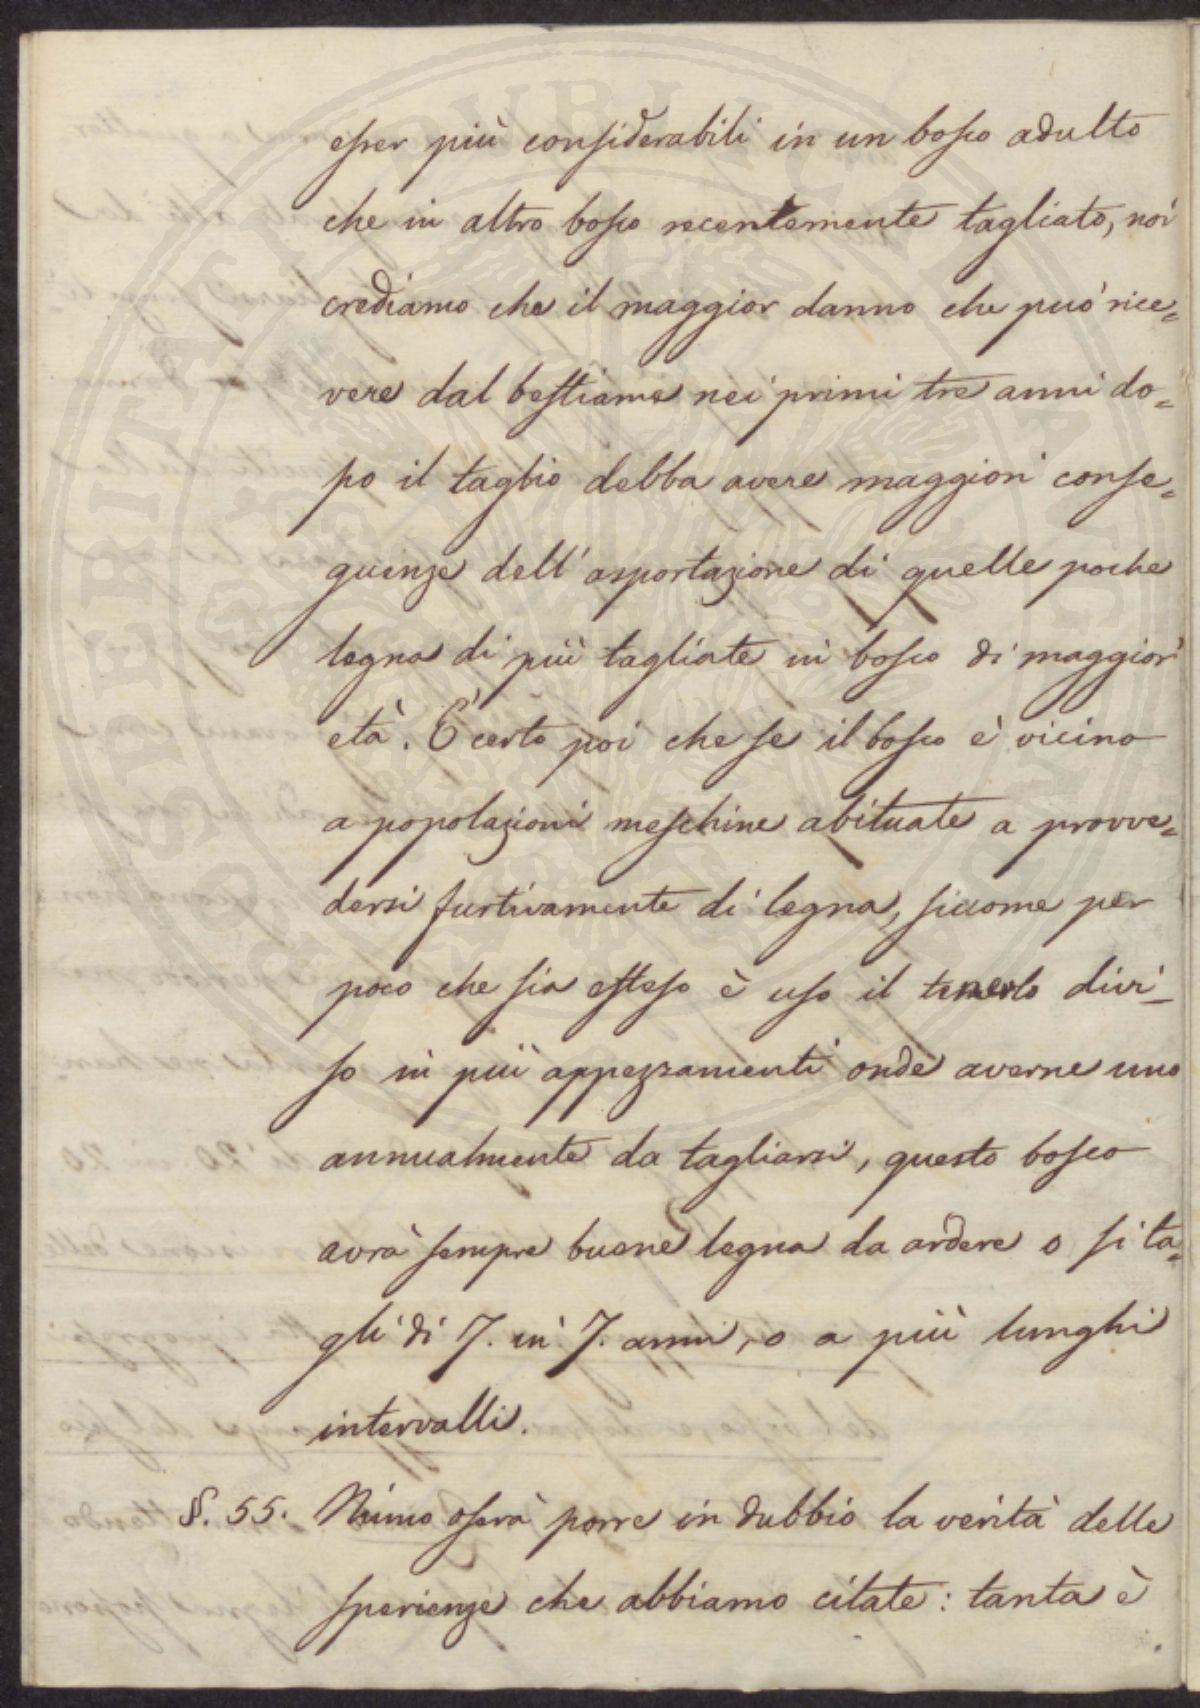 esser più considerabili in un bosco adulto
che in altro bosco recentemente tagliato, noi
crediamo che il maggior danno che può rice=
vere dal bestiame nei primi tre anni do=
po il taglio debba avere maggiori conse=
guenze dell'asportazione di quelle poche
legna di più tagliate in bosco di maggior
età. È certo poi che se il bosco è vicino
a popolazioni meschine abituate a provve=
dersi furtivamente di legna, siccome per
poco che sia esteso è uso il tenerlo divi_
so in più appezzamenti onde averne uno
annualmente da tagliarsi, questo bosco
avrà sempre buone legna da ardere o si ta=
gli di 7. in 7. anni, o a più lunghi
intervalli.
§. 55. Niuno oserà porre in dubbio la verità delle
sperienze che abbiamo citate: tanta è